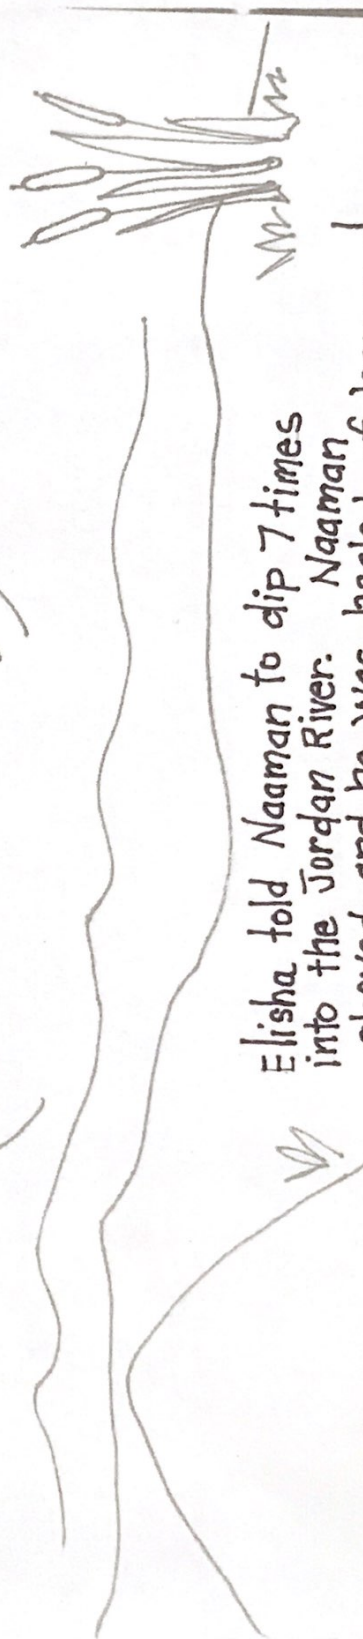 Elisha told Naaman to dip 7 times
into the Jordan River. Naaman
and he was